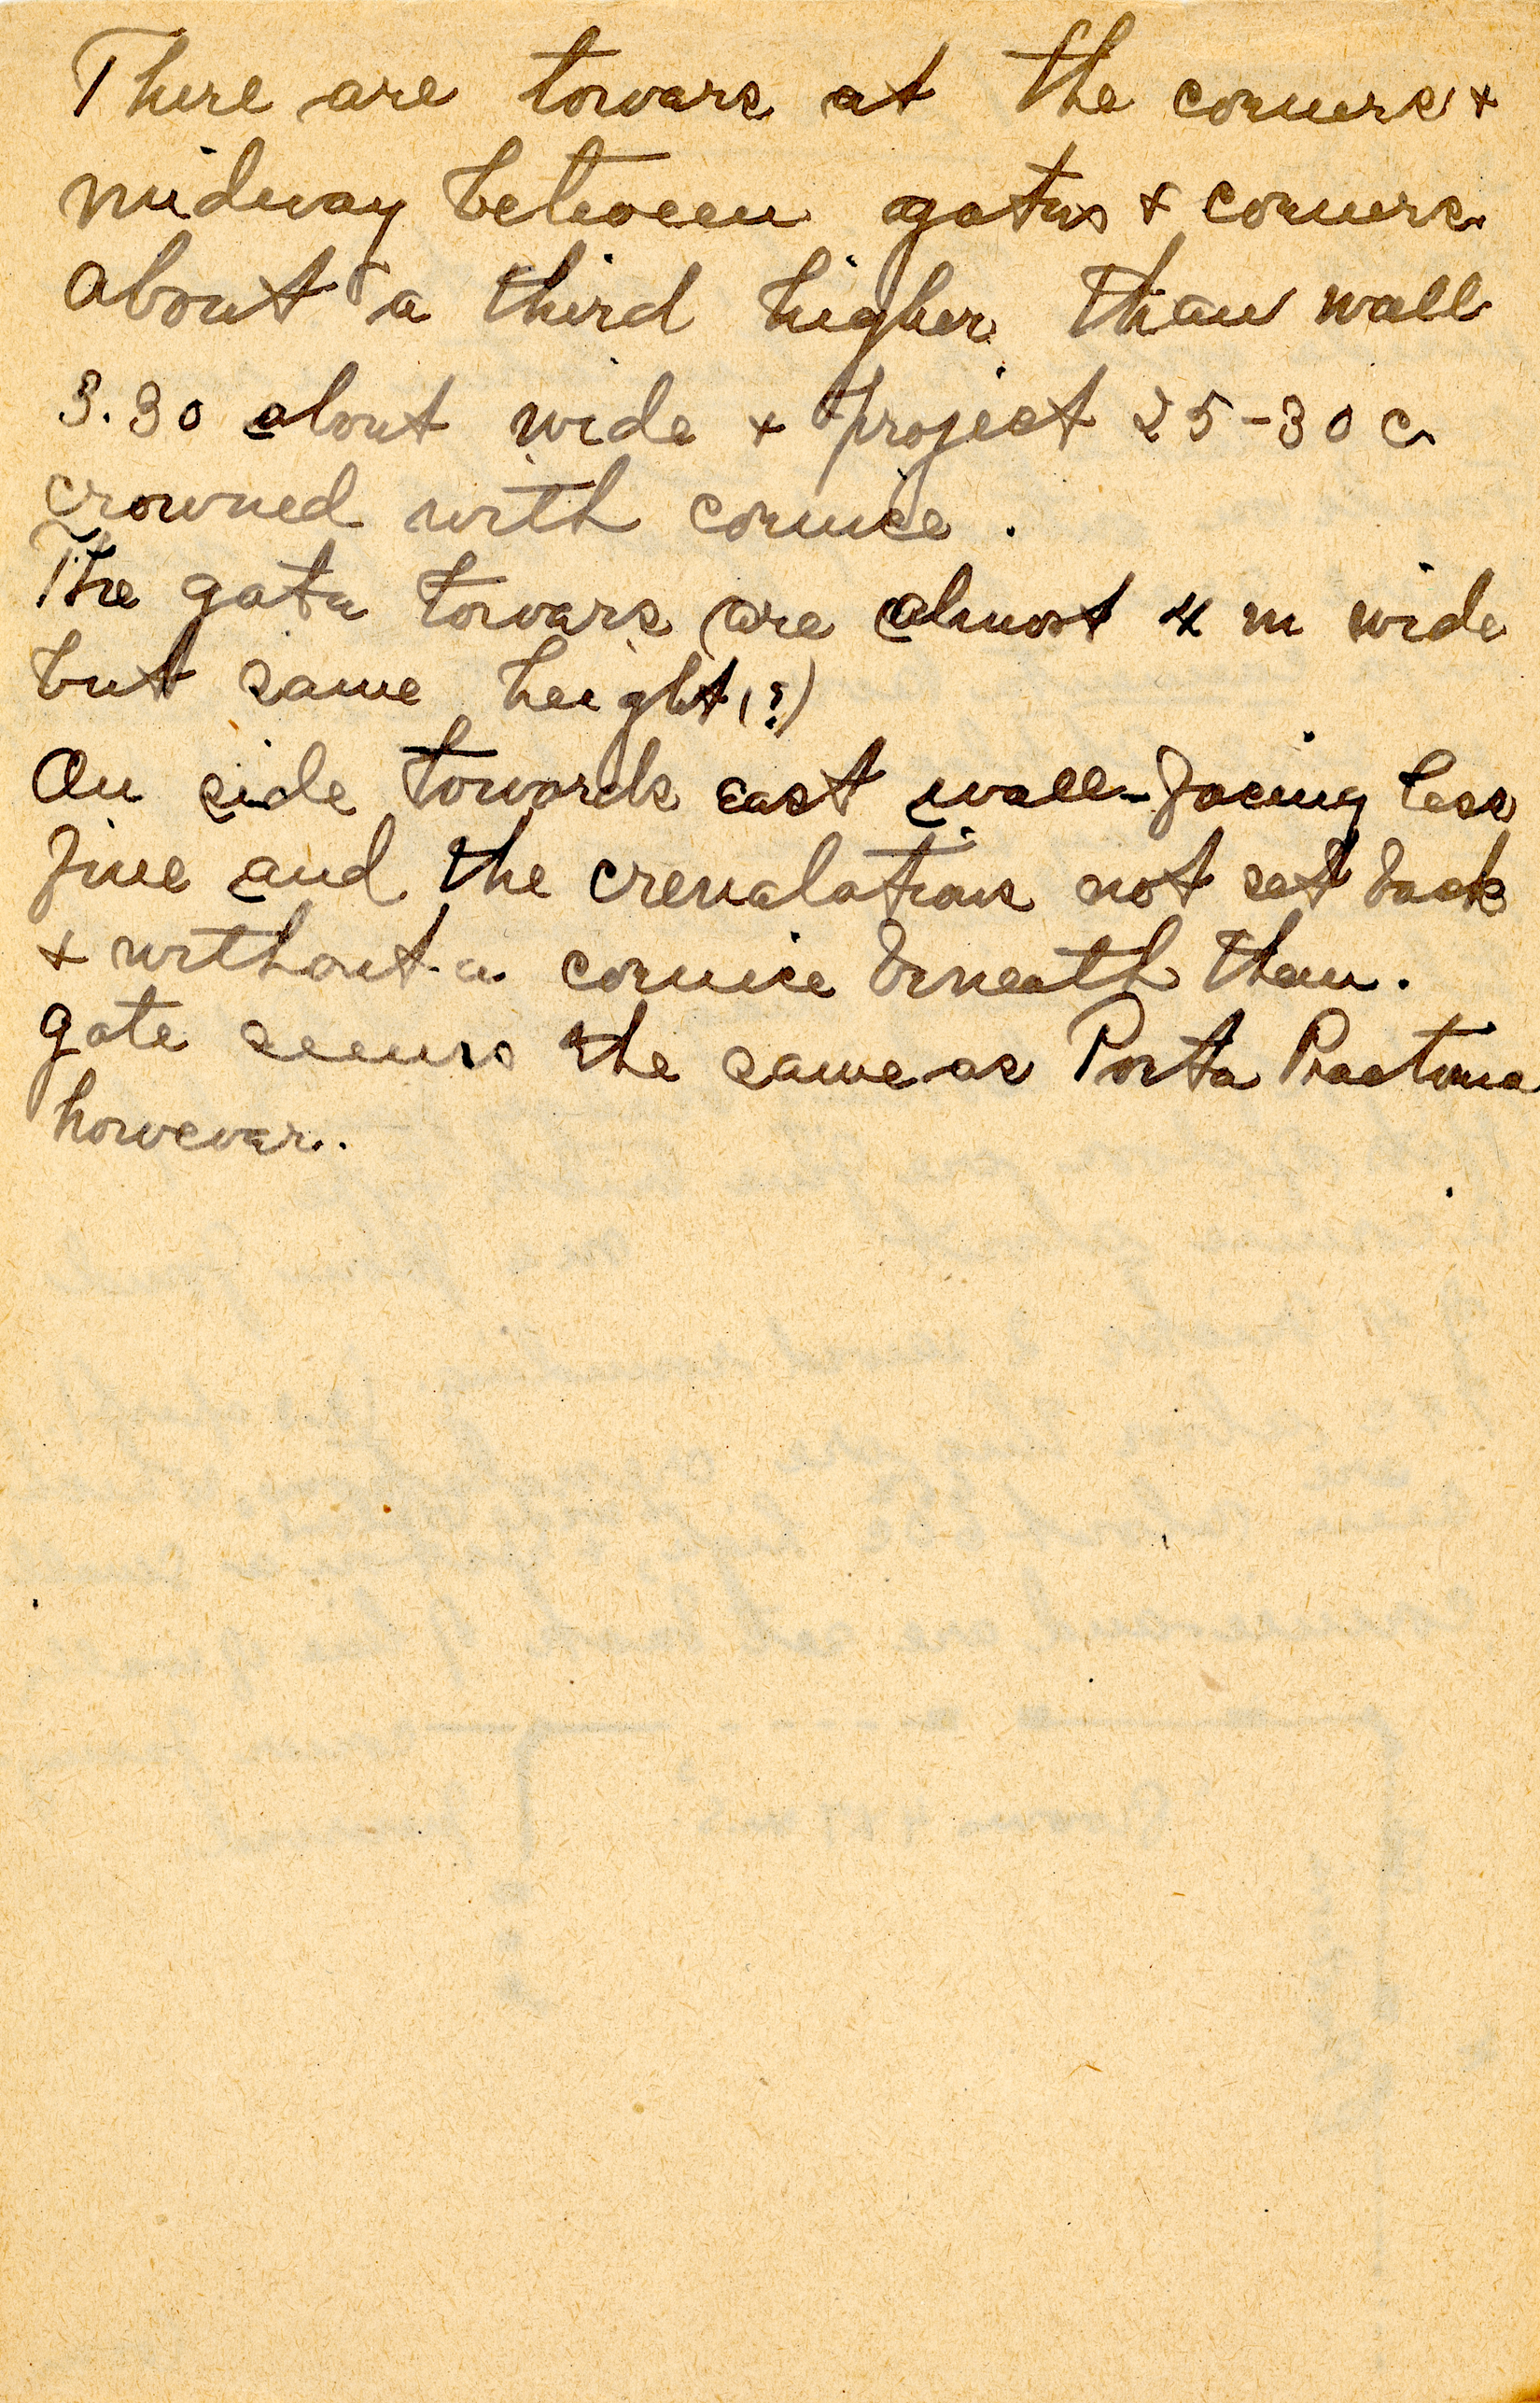 There are towers at the corners +
midway between gates + corners
about a third higher than wall
3.30 about wide + project 25-30 c
crowned with cornice.
The gate towers are almost 4 m wide
but same height (?)
On side towards east wall-facing less
fine and the crenalations not set back
+ without a cornice beneath them.
gate seems the same as Porta Praetoria
however.